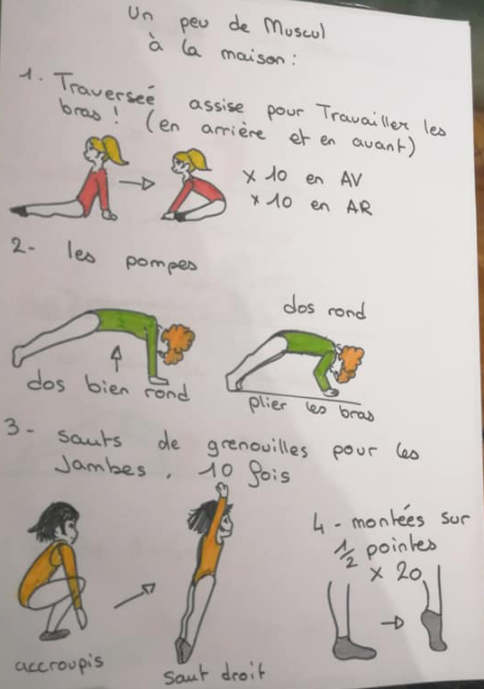 Un peu de Muscul
à la maison :
1. Traverseé assise pour Travailler les
bras ! (en arrière et en avant)
x 10 en AV
x 10 en AR
2- les pompes
dos rond
dos bien rond
plier les bras
3- sauts de grenouilles pour les
Jambes. 10 fois
4 - montées sur
1/2 pointes
x 20
accroupis
saut droit